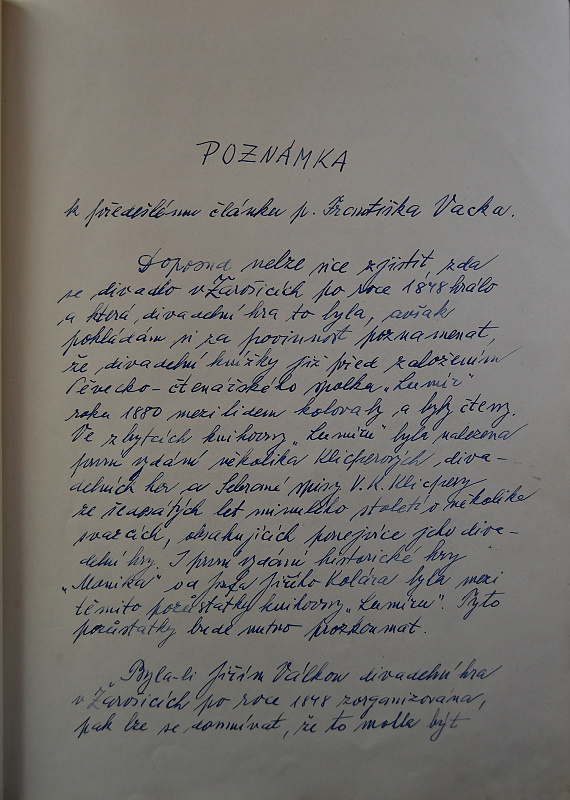 POZNÁMKA
k předešlému článku p. Františka Vacka.
Doposud nelze sice zjistit, zda
se divadlo v Žarošicích po roce 1848 hrálo
a která divadelní hra to byla, avšak
pokládám si za povinnost poznamenat,
že divadelní knížky již před založením
Pěvecko-čtenářského spolku „Lumír"
roku 1880 mezi lidem kolovaly a byly čteny.
Ve zbytcích knihovny „Lumíru" byla nalezena
první vydání několika Klicperových diva-
delních her a Sebrané spisy V. K. Klicpery
ze šedesátých let minulého století v několika
svazcích, obsahujících ponejvíce jeho diva-
delní hry. I první vydání historické hry
„Monika" od Josefa Jiřího Kolára byla mezi
těmito pozůstatky knihovny „Lumíru". Tyto
pozůstatky bude nutno prozkoumat.
Byla-li Jiřím Válkou divadelní hra
v Žarošicích po roce 1848 zorganizována,
pak lze se domnívat, že to mohla být